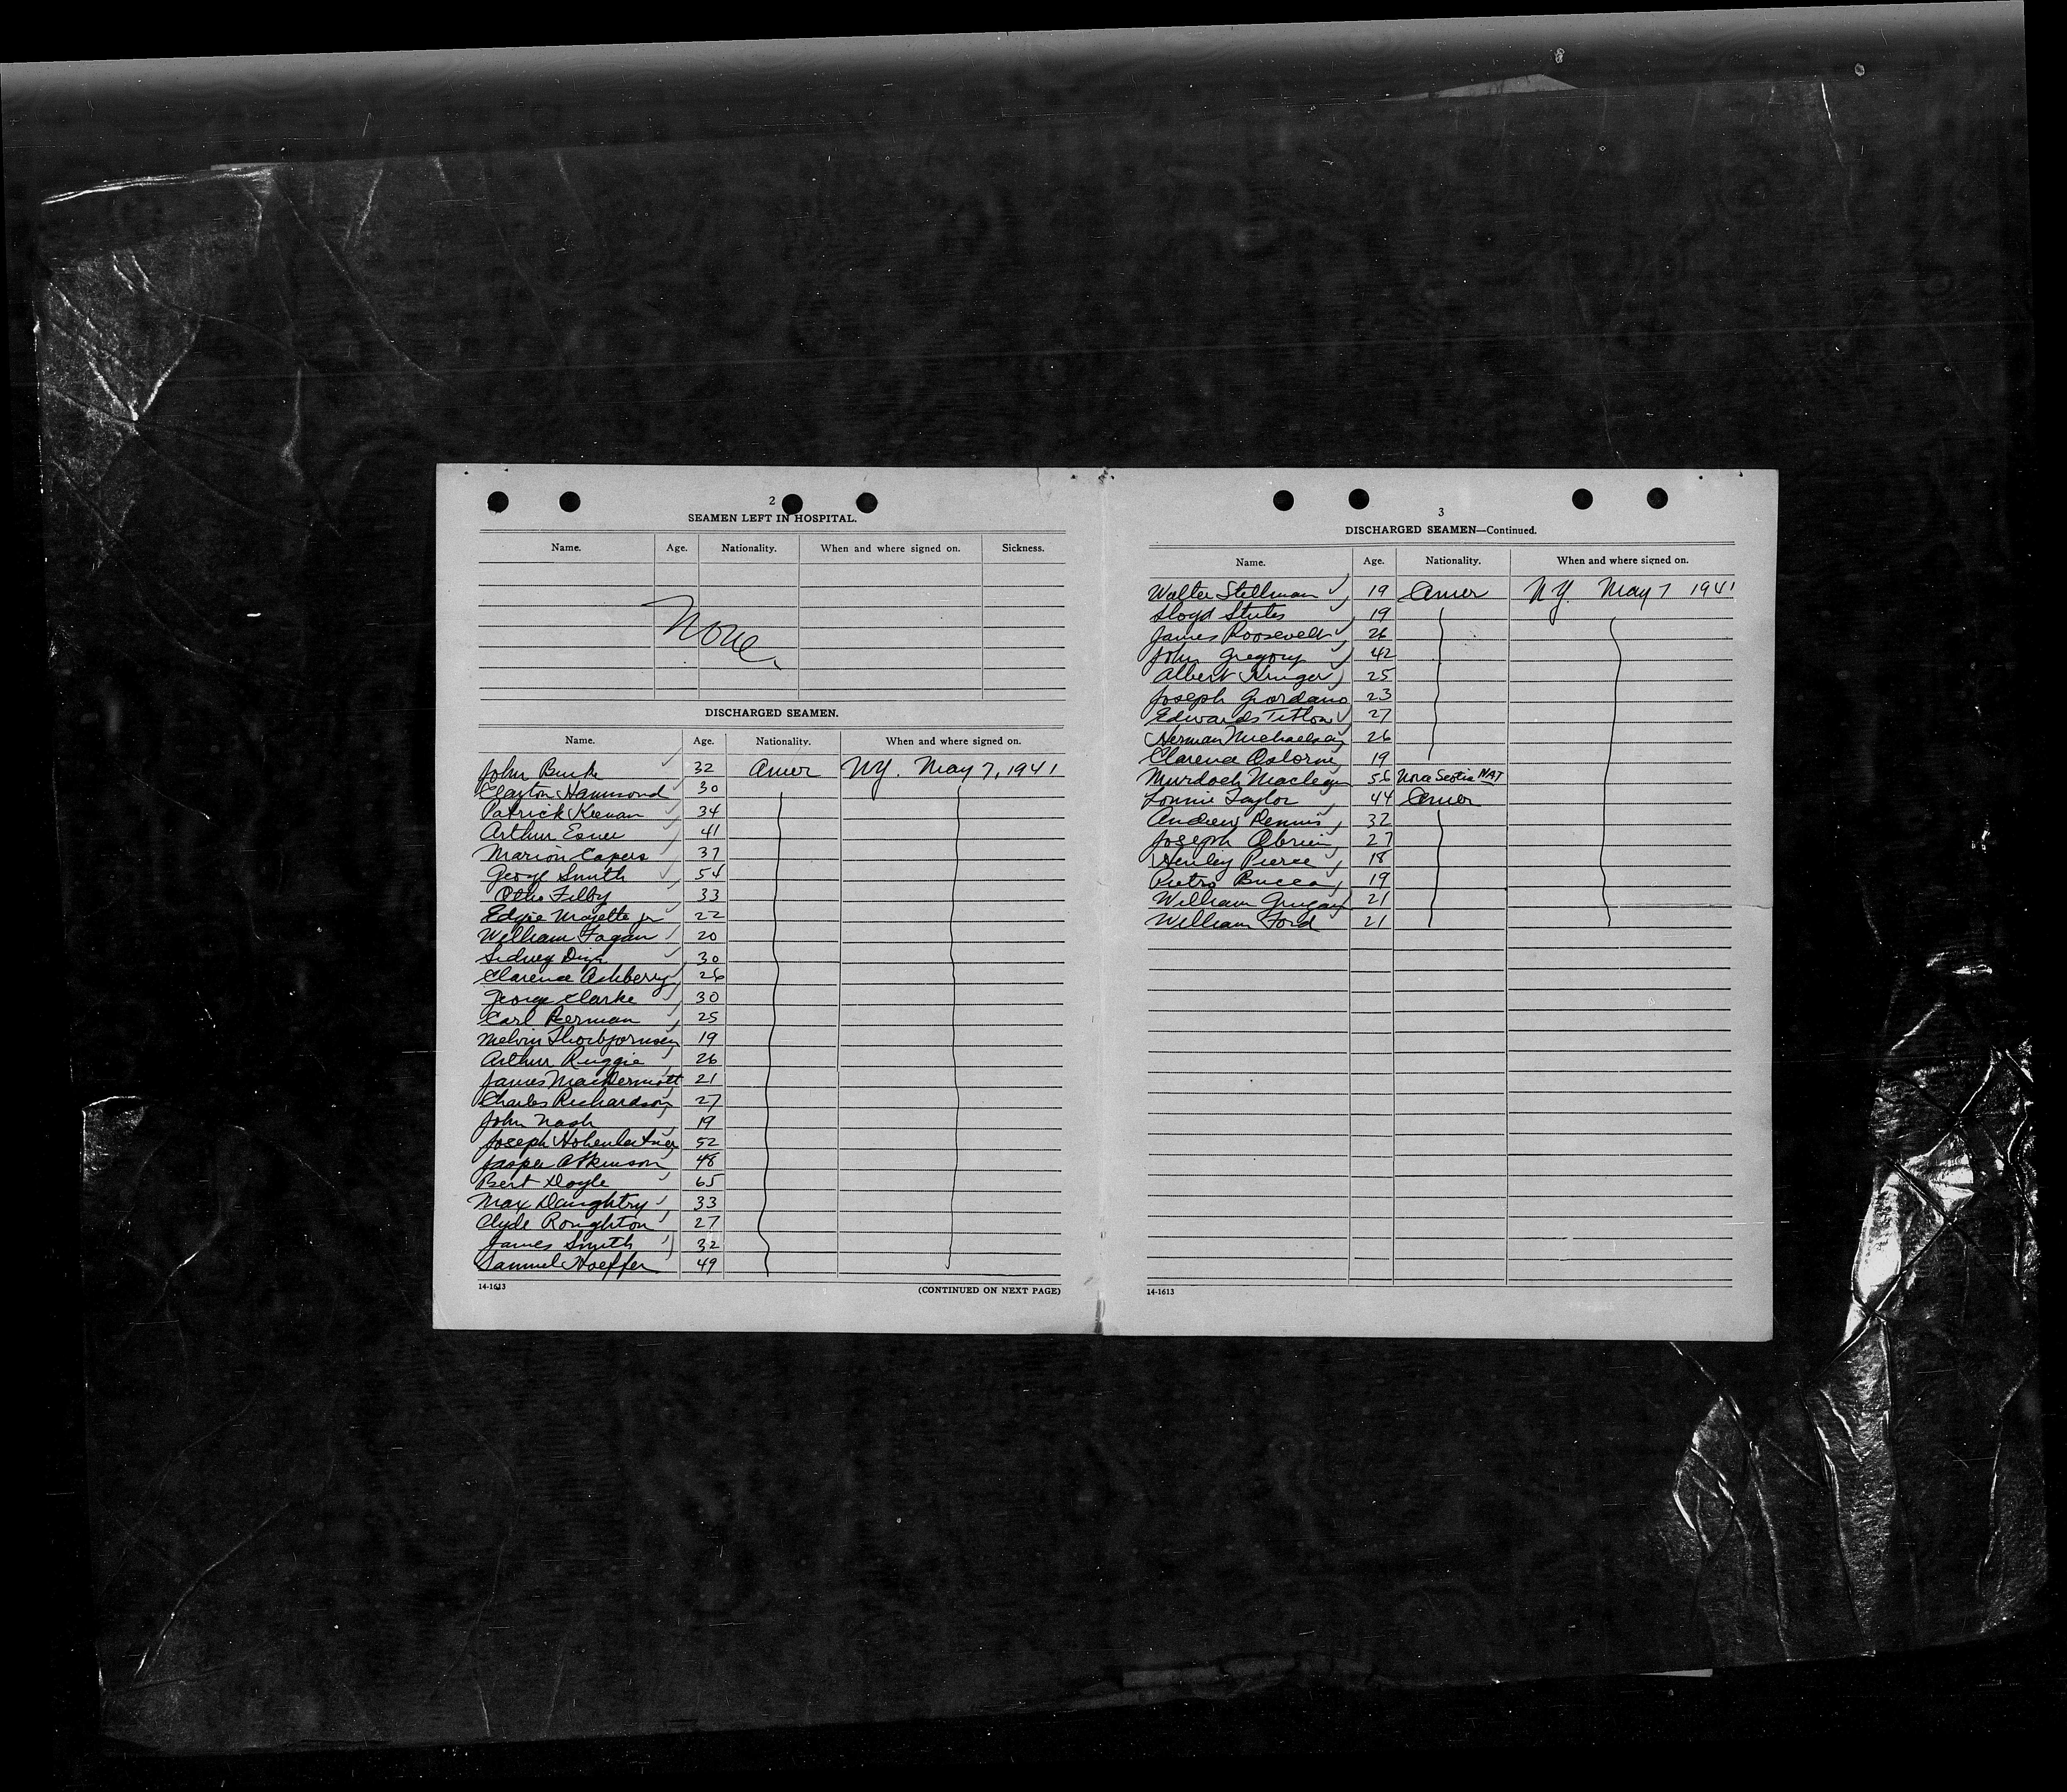 2
SEAMEN LEFT IN HOSPITAL.
Name. Age. Nationality. When and where signed on. Sickness.
None
DISCHARGED SEAMEN.
Name. Age. Nationality. When and where signed on.
John Burke 32 Amer NY. May 7, 1941
Clayton Hammond 30
Patrick Keenan 34
Arthur 41
Marion Capers 37
George Smith 54
Otho Filby 33
Edgie Majette jr 22
William Fagan 20
Sidney 30
Clarence Ashberry 26
George Clarke 30
Carl Berman 25
Melvin Thorbjornsen 19
Arthur Ruggie 26
James MacDermott 21
Charles Richardson 27
John Nash 19
Joseph 52
Jasper Atkinson 48
Bert Doyle 65
Max Daughtry 33
Clyde Roughton 27
James Smith 32
Samuel Hoeffer 49
14-1613 (CONTINUED ON NEXT PAGE)
3
DISCHARGED SEAMEN—Continued.
Name. Age. Nationality. When and where signed on.
Walter Stellman 19 Amer N.Y. May 7 1941
Lloyd Stutes 19
James Roosevelt 26
John Gregory 42
Albert Kruger 25
Joseph Giordano 23
Edwards Titlow 27
Herman Michaelson 26
Clarence Osborne 19
Murdoch Maclean 56 Nova Scotia NAT
Lonnie Taylor 44 Amer
Andrew Dennis 32
Joseph Obrien 27
Henley Pierce 18
Pietro Bucca 19
William 21
William Ford 21
14-1613